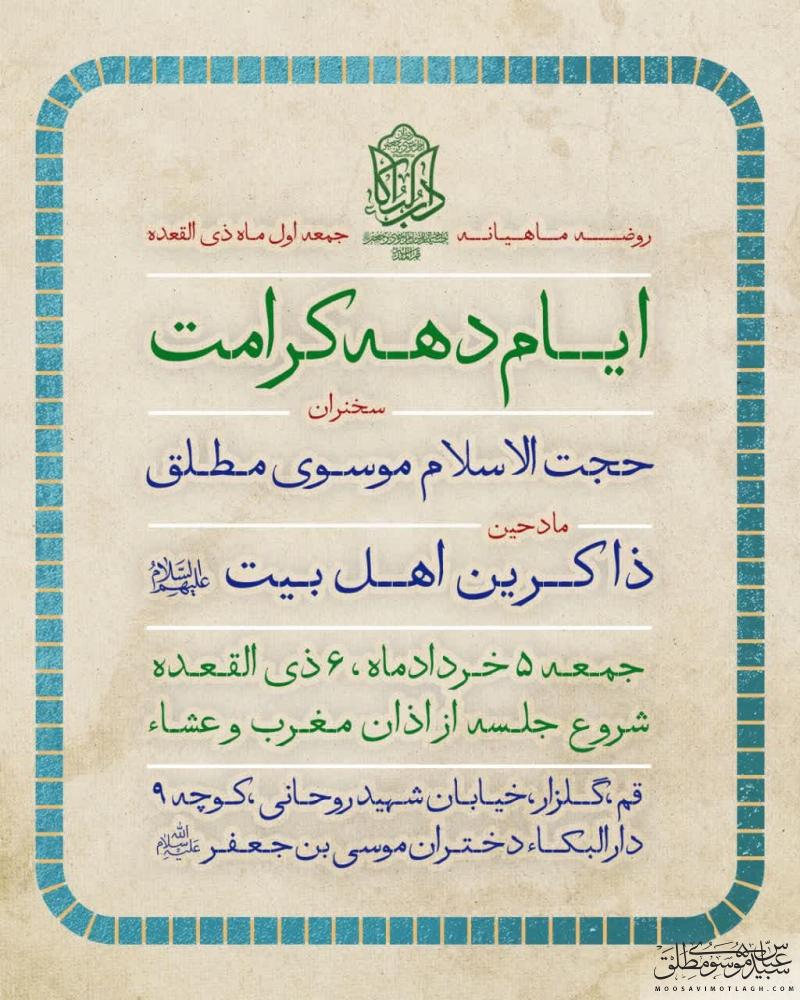 دارالبکاء
روضه ماهیانه
جمعه اول ماه ذی القعده
ایام دهه کرامت
سخنران
حجت الاسلام موسوی مطلق
مادحین
ذاکرین اهل بیت علیهم السلام
جمعه ۵ خردادماه ، ۶ ذی القعده
شروع جلسه از اذان مغرب و عشاء
قم ،گلزار،خیابان شهید روحانی ،کوچه ۹
دارالبکاء دختران موسی بن جعفر سلام الله علیه
سید عباس موسوی مطلق
MOOSAVIMOTLAGH.COM